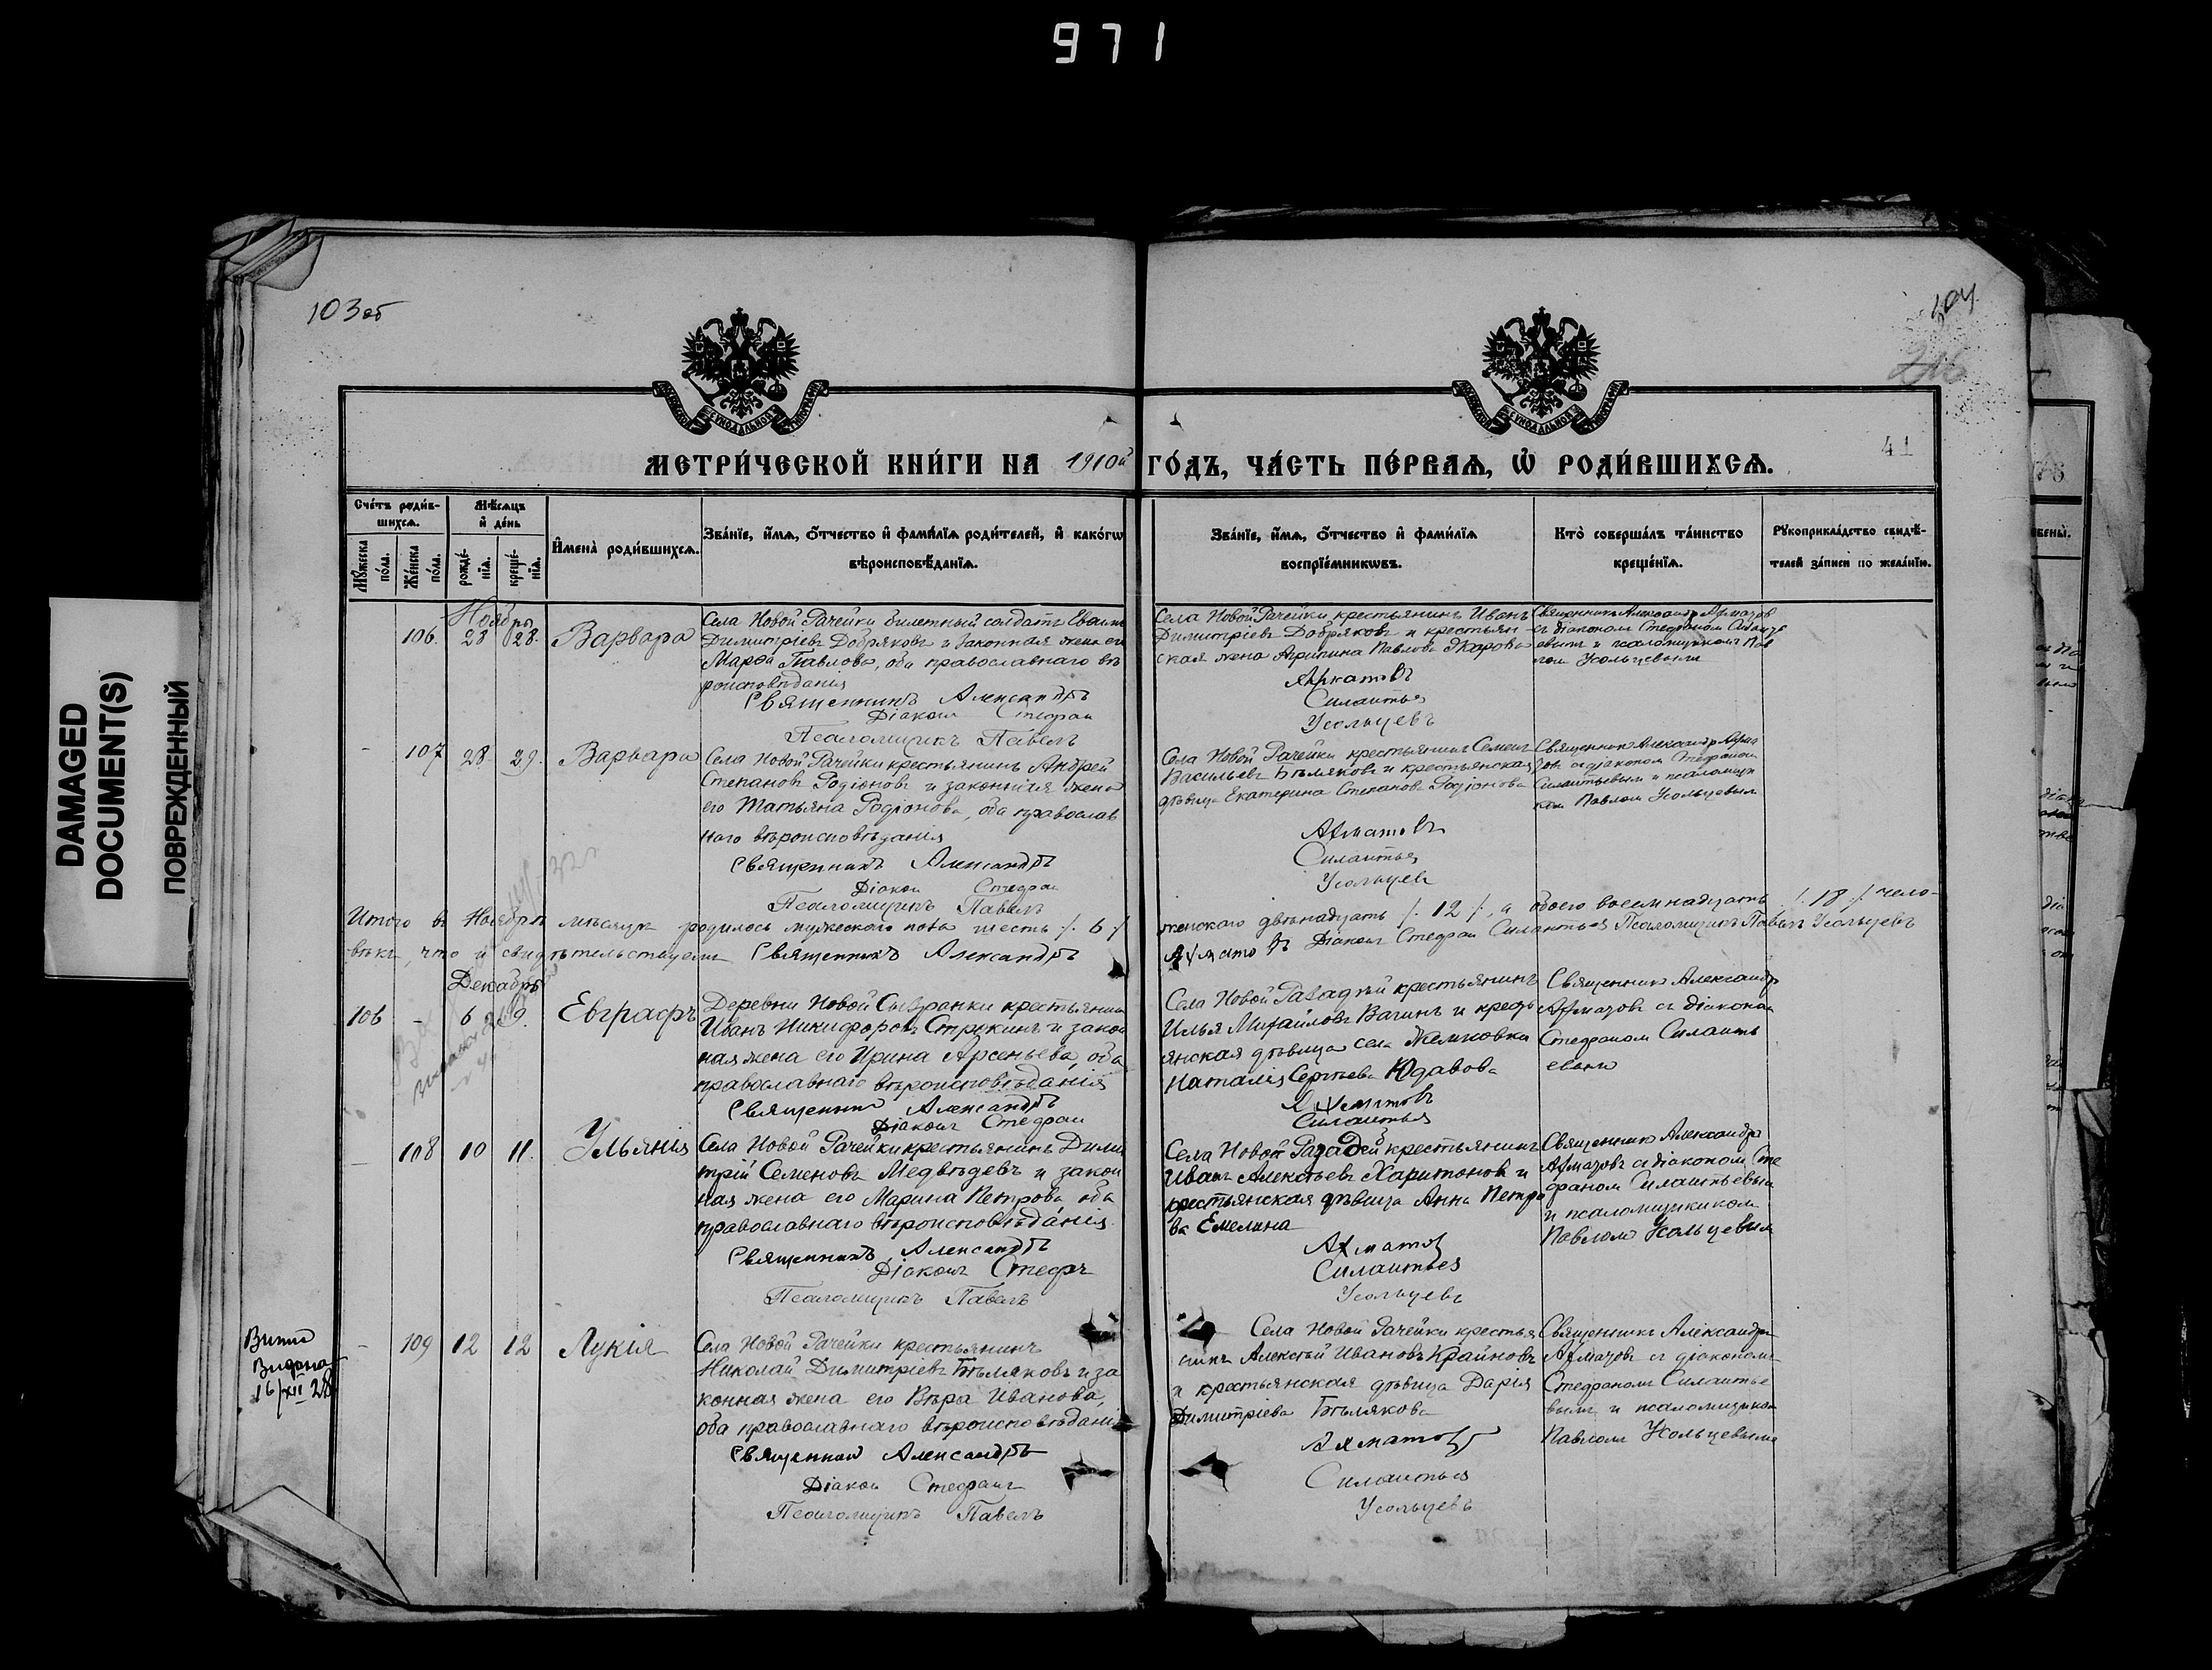 971
DAMAGED
DOCUMENT(S)
ПОВРЕЖДЕННЫЙ
103 об
104
41
МЕТРИ́ЧЕСКОЙ КНИ́ГИ НА 1910й ГО́ДЪ, ЧА́СТЬ ПЕ́РВАѦ, Ѽ РОДИ́ВШИХСѦ.
Сче́тъ роди́в-
шихсѧ.
Мꙋ́жеска
по́ла.
Же́нска
по́ла.
Мѣ́сѧцъ
и҆ де́нь
рожде́-
нїѧ.
креще́-
нїѧ.
И҆мена̀ роди́вшихсѧ.
Зва́нїе, и҆́мѧ, ѻ҆́тчество и҆ фами́лїѧ роди́телей, и҆ како́гѡ
вѣроисповѣ́данїѧ.
Зва́нїе, и҆́мѧ, ѻ҆́тчество и҆ фами́лїѧ
воспрїе́мникѡвъ.
Кто̀ соверша́лъ та́инство
креще́нїѧ.
Рꙋкоприкла́дство свидѣ́-
телей за́писи по жела́нїю.
Ноябрь
106. 28 28. Варвара
Села Новой Рачейки билетный солдатъ
Димитріевъ Добряковъ и законная жена его
Марѳа Павлова, оба православнаго вѣ
роисповѣданія
Священникъ Александръ
Діаконъ Стефан
Псаломщикъ Павелъ
Села Новой Рачейки крестьянинъ Иванъ
Димитріевъ Добряковъ и крестьян-
ская жена Агрипина Павлова
Ахматовъ
Силантьев
Усольцевъ
Священникъ Александръ Ахматов
съ діаконом Стефаном Силанть
евымъ и псаломщикомъ Пав
лом Усольцевым
- 107 28. 29. Варвара
Села Новой Рачейки крестьянинъ Андрей
Степановъ Родіоновъ и законная жена
его Татьяна Родіонова, оба православ
наго вѣроисповѣданія
Священникъ Александръ
Діакон Стефан
Псаломщикъ Павелъ
Села Новой Рачейки крестьянинъ Семенъ
Васильевъ Бѣляковъ и крестьянская
дѣвица Екатерина Степанова Родіонова
Ахматовъ
Силантьев
Усольцев
Священник Александр Ахма
товъ съ діаконом Стефаном
Силантьевым и псаломщи
ком Павлом Усольцевым
Итого въ Ноябрѣ мѣсяцѣ родилось мужескаго пола шесть /. 6 /. женскаго двѣнадцать /. 12 /., а обоего восемнадцать /. 18 /. чело-
вѣкъ, что и свидѣтельствуемъ Священникъ Александръ Ахматовъ Діаконъ Стефан Силантьев Псаломщикъ Павелъ Усольцевъ
Декабрь
106 - 6 9. Евграфъ
Деревни Новой Сызранки крестьянинъ
Иванъ Никифоровъ Стрюкинъ и закон
ная жена его Ирина Арсеньева, оба
православнаго вѣроисповѣданія
Священник Александръ
Діаконъ Стефан
Села Новой Рачейки крестьянинъ
Илья Михайловъ Вагинъ и кресть
янская дѣвица села
Наталія Сергѣева Юдавова
Ахматовъ
Силантьев
Священникъ Александръ
Ахматовъ съ діаконом
Стефаном Силанть
евым
- 108 10 11. Ульянія
Села Новой Рачейки крестьянинъ Дими
трій Семеновъ Медвѣдевъ и закон
ная жена его Марина Петрова оба
православнаго вѣроисповѣданія.
Священникъ Александръ
Діаконъ Стефъ
Псаломщикъ Павелъ
Села Новой Рачейки крестьянинъ
Иванъ Алексѣевъ Харитоновъ и
крестьянская дѣвица Анна Петро
ва Емелина
Ахматов
Силантьев
Усольцевъ
Священникъ Александръ
Ахматовъ съ діаконом Сте
фаном Силантьевым
и псаломщиком
Павлом Усольцевым
Выдана
16/XII 28
- 109 12 12 Лукія
Села Новой Рачейки крестьянинъ
Николай Димитріевъ Бѣляковъ и за
конная жена его Вѣра Иванова,
оба православнаго вѣроисповѣданія
Священник Александръ
Діакон Стефанъ
Псаломщикъ Павелъ
Села Новой Рачейки крестья
нинъ Алексѣй Ивановъ Крайновъ
и крестьянская дѣвица Дарія
Димитріева Бѣлякова
Ахматовъ
Силантьев
Усольцевъ
Священникъ Александръ
Ахматовъ съ діакономъ
Стефаномъ Силантье
вымъ и псаломщиком
Павлом Усольцевымъ